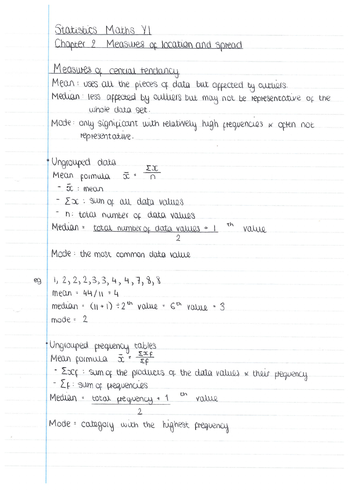 Statistics Maths Y1
Chapter 2 Measures of location and spread
Measures of central tendancy
Mean : uses all the pieces of data but affected by outliers.
Median : less affected by outliers but may not be representative of the
whole data set.
Mode : only significant with relatively high frequencies & often not
representative.
• Ungrouped data
Mean formula x̄ = Σx/n
- x̄ : mean
- Σx : sum of all data values
- n : total number of data values
Median = (total number of data values + 1)/2 th value
Mode : the most common data value
eg 1, 2, 2, 2, 3, 3, 4, 4, 7, 8, 8
mean = 44/11 = 4
median = (11 + 1) ÷ 2 th value = 6th value = 3
mode = 2
• Ungrouped frequency tables
Mean formula x̄ = Σxf/Σf
- Σxf : sum of the products of the data values x their frequency
- Σf : sum of frequencies
Median = (total frequency + 1)/2 th value
Mode = category with the highest frequency